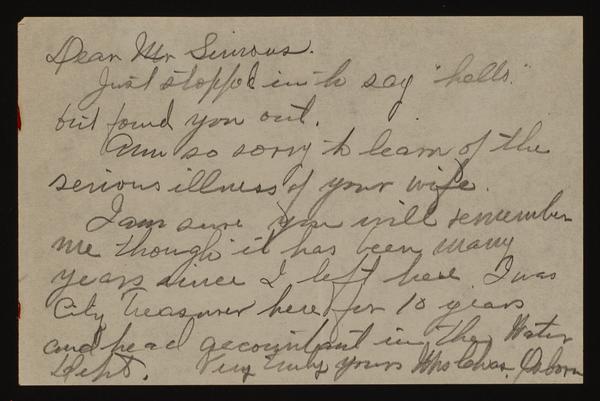 Dear Mr Simons.
Just stopped in to say "hello."
but found you out.
Am so sorry to learn of the
serious illness of your wife.
I am sure you will remember
me though it has been many
years since I left here I was
City Treasurer here for 10 years
and head accountant in the Water
Dept. Very Truly yours Mrs Chas. Osborn